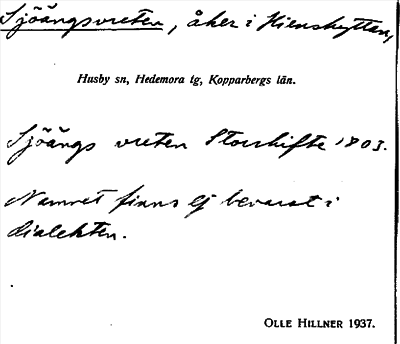 Sjöängsvreten, åker i Kienshyttan,
Husby sn, Hedemora tg, Kopparbergs län.
Sjöängs vreten Storskifte 1803.
Namnet finns ej bevarat i
dialekten.
OLLE HILLNER 1937.